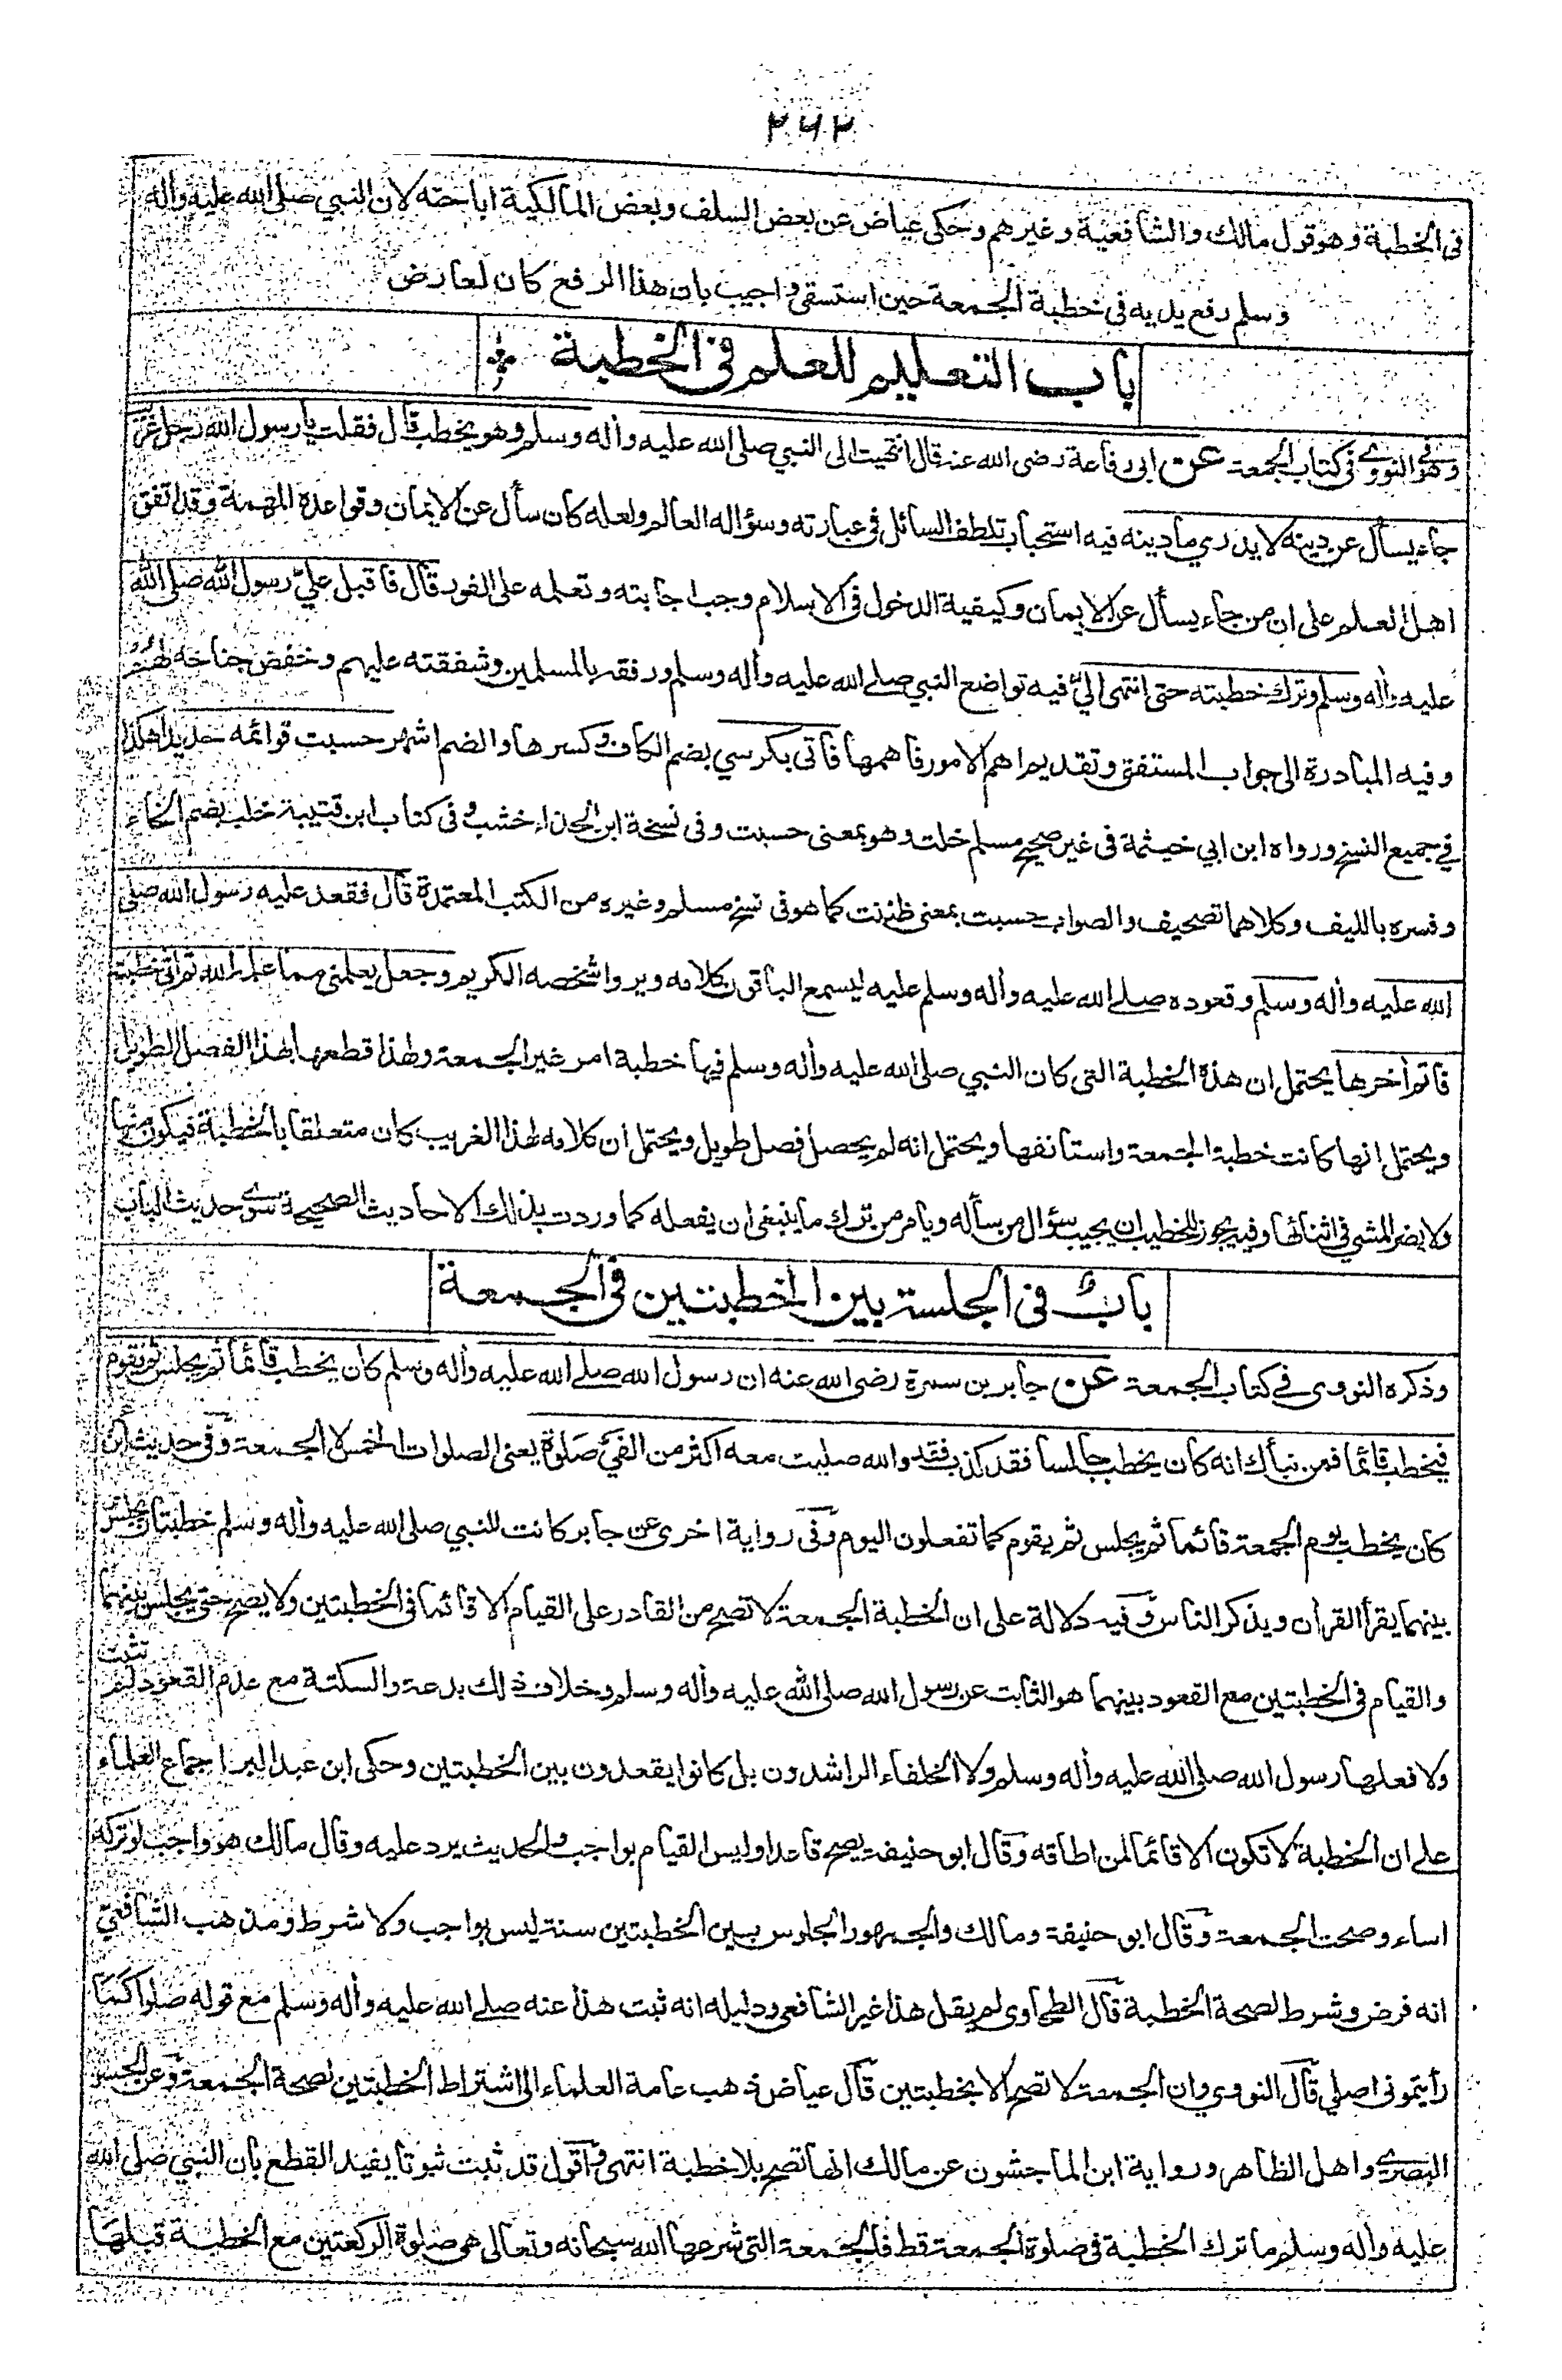 ٢٦٢
فى الخطبة وهو قول مالك والشافعية وغيرهم وحكى عياض عن بعض السلف وبعض المالكية اباحته لان النبي صلى الله عليه وأله
وسلم رفع يديه فى خطبة الجمعة حين استسقى واجيب بان هذا الرفع كان لعارض
باب التعليم للعلم فى الخطبة
وهو فى النووي فى كتاب الجمعة عن ابى رفاعة رضى الله عنه قال انتهيت الى النبي صلى الله عليه وأله وسلم وهو يخطب قال فقلت يا رسول الله رجل غريب
جاء يسأل عن دينه لا يدري ما دينه فيه استحباب تلطف السائل فى عبارته وسؤاله العالم ولعله كان سأل عن الايمان وقواعده المهمة وقد اتفق
اهل العلم على ان من جاء يسأل عن الايمان وكيفية الدخول فى الاسلام وجب اجابته وتعلمه على الفور قال فاقبل عليّ رسول الله صلى الله
عليه وأله وسلم وترك خطبته حتى انتهى اليّ فيه تواضع النبي صلى الله عليه وأله وسلم ورفقه بالمسلمين وشفقته عليهم وخفض جناحه لهم
وفيه المبادرة الى جواب المستفتى وتقديم اهم الامور فاهمها فاتى بكرسي بضم الكاف وكسرها والضم اشهر حسبت قوائمه حديدا هكذا
في جميع النسخ ورواه ابن ابي خيثمة فى غير صحيح مسلم خلت وهو بمعنى حسبت وفى نسخة ابن الحذاء خشب وفى كتاب ابن قتيبة خلب بضم الخاء
وفسره بالليف وكلاهما تصحيف والصواب حسبت بمعنى ظننت كما هو فى نسخ مسلم وغيره من الكتب المعتمدة قال فقعد عليه رسول الله صلى
الله عليه وأله وسلم وقعوده صلى الله عليه وأله وسلم عليه ليسمع الباقون كلامه ويروا شخصه الكريم وجعل يعلمنى مما علمه الله ثم اتى خطبته
فاتم أخرها يحتمل ان هذه الخطبة التى كان النبي صلى الله عليه وأله وسلم فيها خطبة امر غير الجمعة ولهذا قطعها بهذا الفصل الطويل
ويحتمل انها كانت خطبة الجمعة واستانفها ويحتمل انه لم يحصل فصل طويل ويحتمل ان كلامه لهذا الغريب كان متعلقا بالخطبة فيكون منها
ولا يضر المشي فى اثنائها وفيه يجوز للخطيب ان يجيب سؤال من سأله ويامر من ترك ما ينبغى ان يفعله كما وردت بذلك الاحاديث الصحيحة سوى حديث الباب
بابٌ فى الجلسة بين الخطبتين فى الجمعة
وذكره النووى في كتاب الجمعة عن جابر بن سمرة رضى الله عنه ان رسول الله صلى الله عليه وأله وسلم كان يخطب قائما ثم يجلس ثم يقوم
فيخطب قائما فمن نبأك انه كان يخطب جالسا فقد كذب فقد والله صليت معه اكثر من الفي صلوة يعنى الصلوات الخمس لا الجمعة وفى حديث ابن
كان يخطب يوم الجمعة قائما ثم يجلس ثم يقوم كما تفعلون اليوم وفى رواية اخرى عن جابر كانت للنبي صلى الله عليه وأله وسلم خطبتان يجلس
بينهما يقرأ القرأن ويذكر الناس وفيه دلالة على ان الخطبة الجمعة لا تصح من القادر على القيام الا قائما فى الخطبتين ولا يصح حتى يجلس بينهما
والقيام فى الخطبتين مع القعود بينهما هو الثابت عن رسول الله صلى الله عليه وأله وسلم وخلاف ذلك بدعة والسكتة مع عدم القعود لم تثبت
ولا فعلها رسول الله صلى الله عليه وأله وسلم ولا الخلفاء الراشدون بل كانوا يقعدون بين الخطبتين وحكى ابن عبد البر اجماع العلماء
على ان الخطبة لا تكون الا قائما لمن اطاقه وقال ابو حنيفة يصح قاعدا وليس القيام بواجب والحديث يرد عليه وقال مالك هو واجب لو تركه
اساء وصحت الجمعة وقال ابو حنيفة ومالك والجمهور الجلوس بين الخطبتين سنة ليس بواجب ولا شرط ومذهب الشافعيّ
انه فرض وشرط لصحة الخطبة قال الطحاوى لم يقل هذا غير الشافعى ودليله انه ثبت هذا عنه صلى الله عليه وأله وسلم مع قوله صلوا كما
رأيتمونى اصلي قال النووي وان الجمعة لا تصح الا بخطبتين قال عياض ذهب عامة العلماء الى اشتراط الخطبتين لصحة الجمعة وعن الحسن
البصري واهل الظاهر ورواية ابن الماجشون عن مالك انها تصح بلا خطبة انتهى واقول قد ثبت ثبوتا يفيد القطع بان النبي صلى الله
عليه وأله وسلم ما ترك الخطبة فى صلوة الجمعة قط فالجمعة التى شرعها الله سبحانه وتعالى هى صلوة الركعتين مع الخطبة قبلها